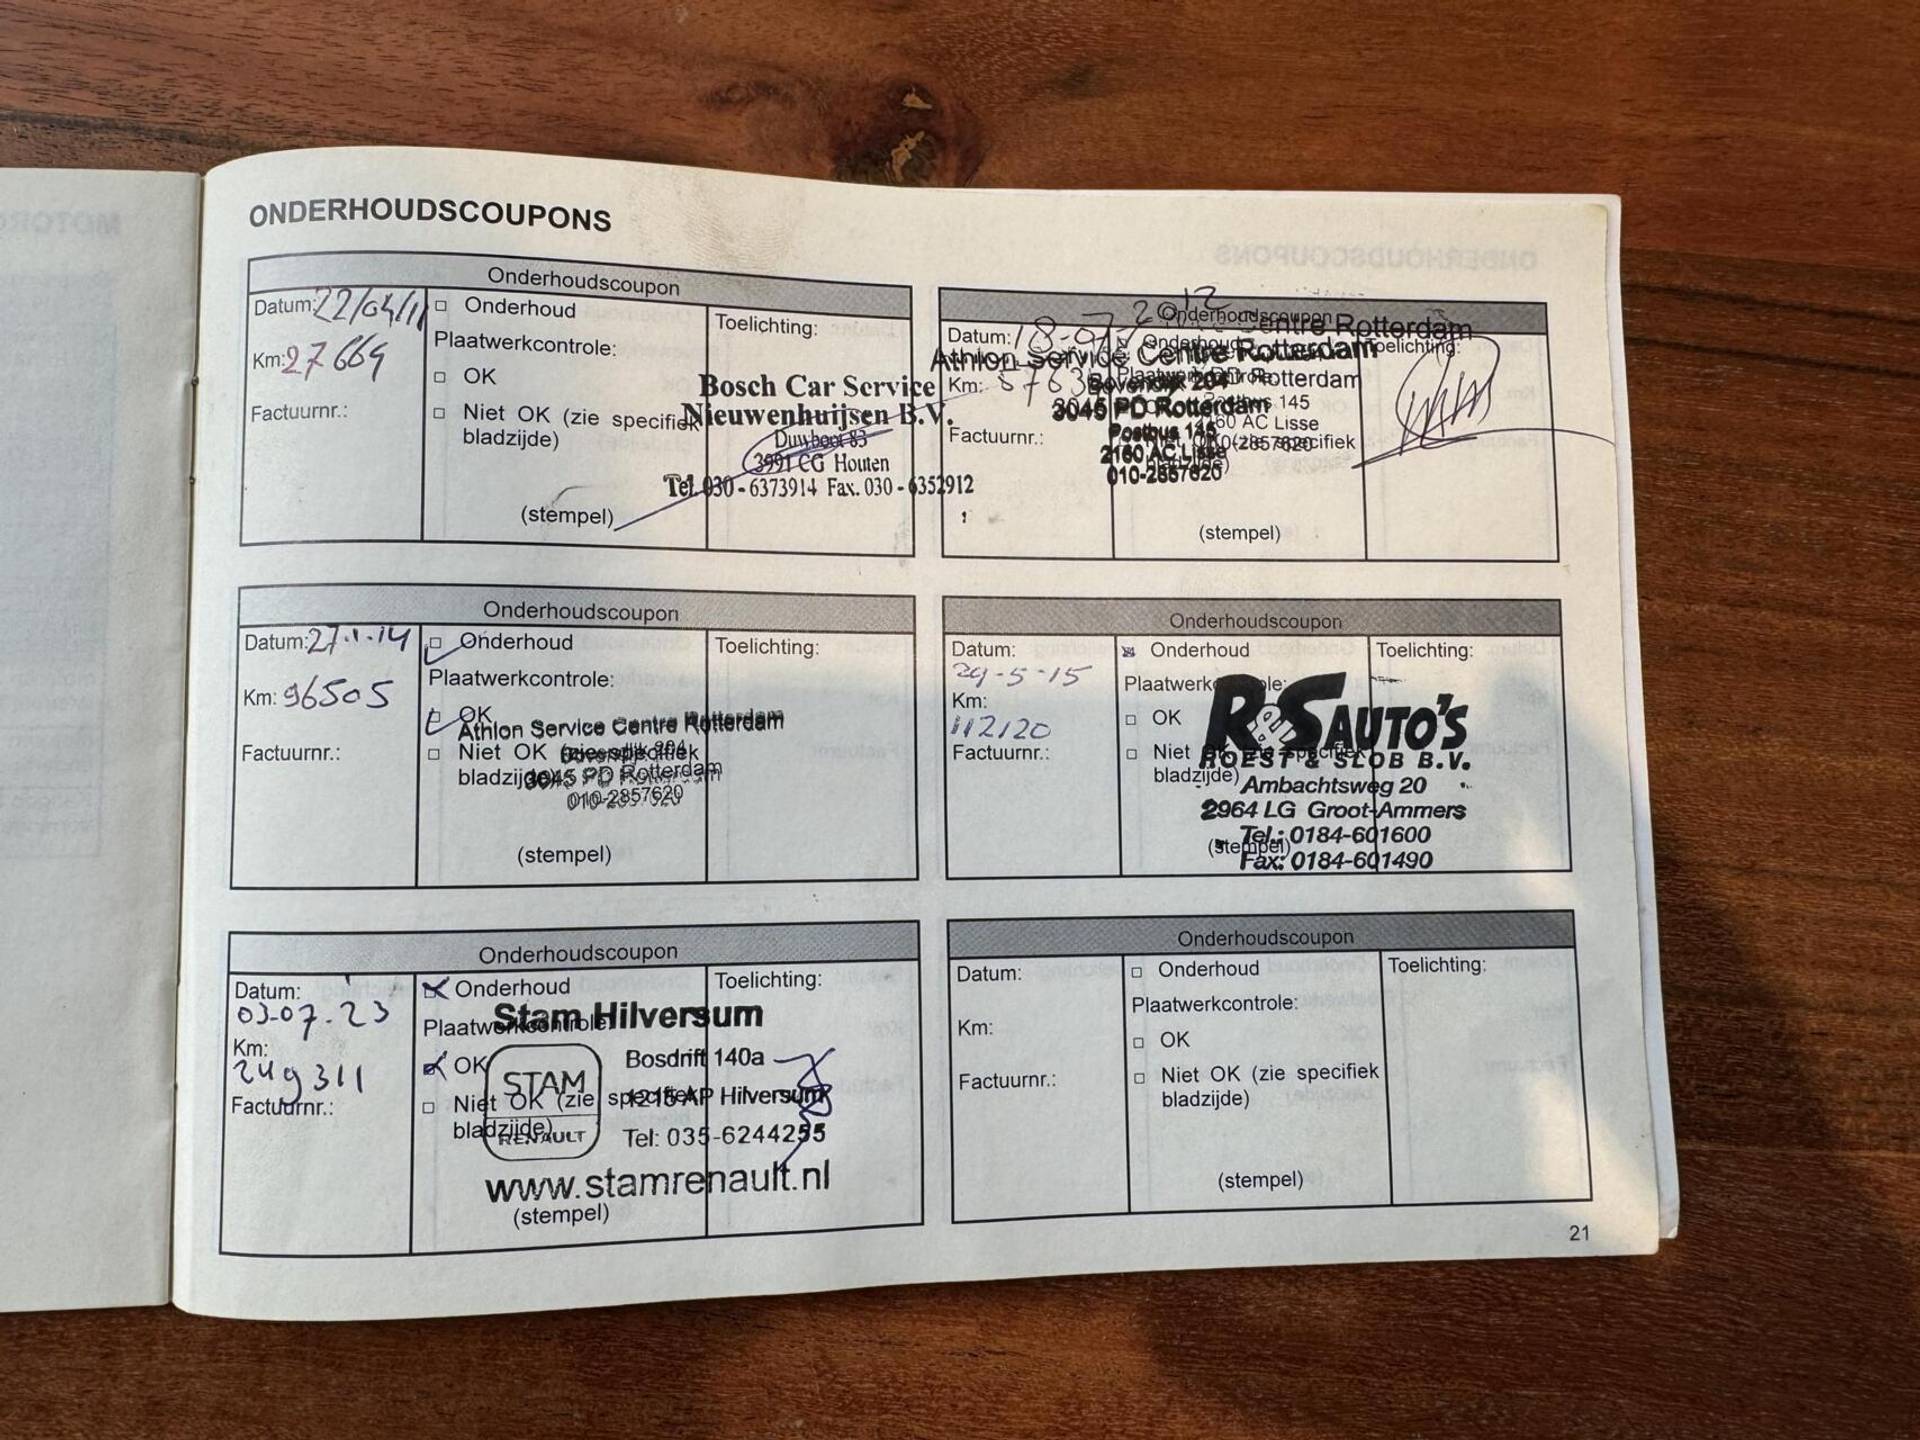 ONDERHOUDSCOUPONS
Onderhoudscoupon
Datum: 22/04/11
Km: 27669
Factuurnr.:
□ Onderhoud
Plaatwerkcontrole:
□ OK
□ Niet OK (zie specifiek
bladzijde)
(stempel)
Toelichting:
Bosch Car Service
Nieuwenhuijsen B.V.
Duwboot 83
3991 CG Houten
Tel. 030 - 6373914 Fax. 030 - 6352912
Onderhoudscoupon
2012
Datum: 18-07-
Km:
Factuurnr.:
Onderhoud
Plaatwerkcontrole
Toelichting:
Athlon Service Centre Rotterdam
Bovendijk 204
3045 PD Rotterdam
Postbus 145
2160 AC Lisse
010-2857620
(stempel)
Onderhoudscoupon
Datum: 27.1.14
Km: 96505
Factuurnr.:
□ Onderhoud
Plaatwerkcontrole:
□ OK
□ Niet OK (zie specifiek
bladzijde)
Toelichting:
Athlon Service Centre Rotterdam
Bovendijk 204
3045 PD Rotterdam
010-2857620
(stempel)
Onderhoudscoupon
Datum:
29-5-15
Km:
112120
Factuurnr.:
Onderhoud
Plaatwerkcontrole:
□ OK
□ Niet OK (zie specifiek
bladzijde)
Toelichting:
R&S AUTO'S
ROEST & SLOB B.V.
Ambachtsweg 20
2964 LG Groot-Ammers
Tel.: 0184-601600
(stempel)
Fax: 0184-601490
Onderhoudscoupon
Datum:
03-07-23
Km:
249311
Factuurnr.:
Onderhoud
Plaatwerkcontrole:
OK
□ Niet OK (zie specifiek
bladzijde)
Toelichting:
Stam Hilversum
STAM
RENAULT
Bosdrift 140a
1215 AP Hilversum
Tel: 035-6244255
www.stamrenault.nl
(stempel)
Onderhoudscoupon
Datum:
Km:
Factuurnr.:
□ Onderhoud
Plaatwerkcontrole:
□ OK
□ Niet OK (zie specifiek
bladzijde)
(stempel)
Toelichting:
21